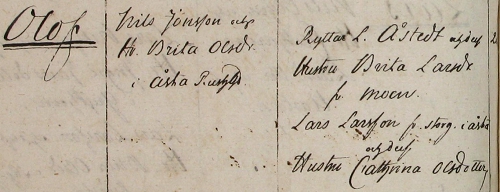 Olof
Nils Jönsson och
H. Brita Olsdr
i åsha
Ryttar L. Åstedt och dess
Hustru Brita Larsdr
fr moen.
Lars Larsson fr. storg. i åsha
och dess
Hustru Cathrina Olsdotter